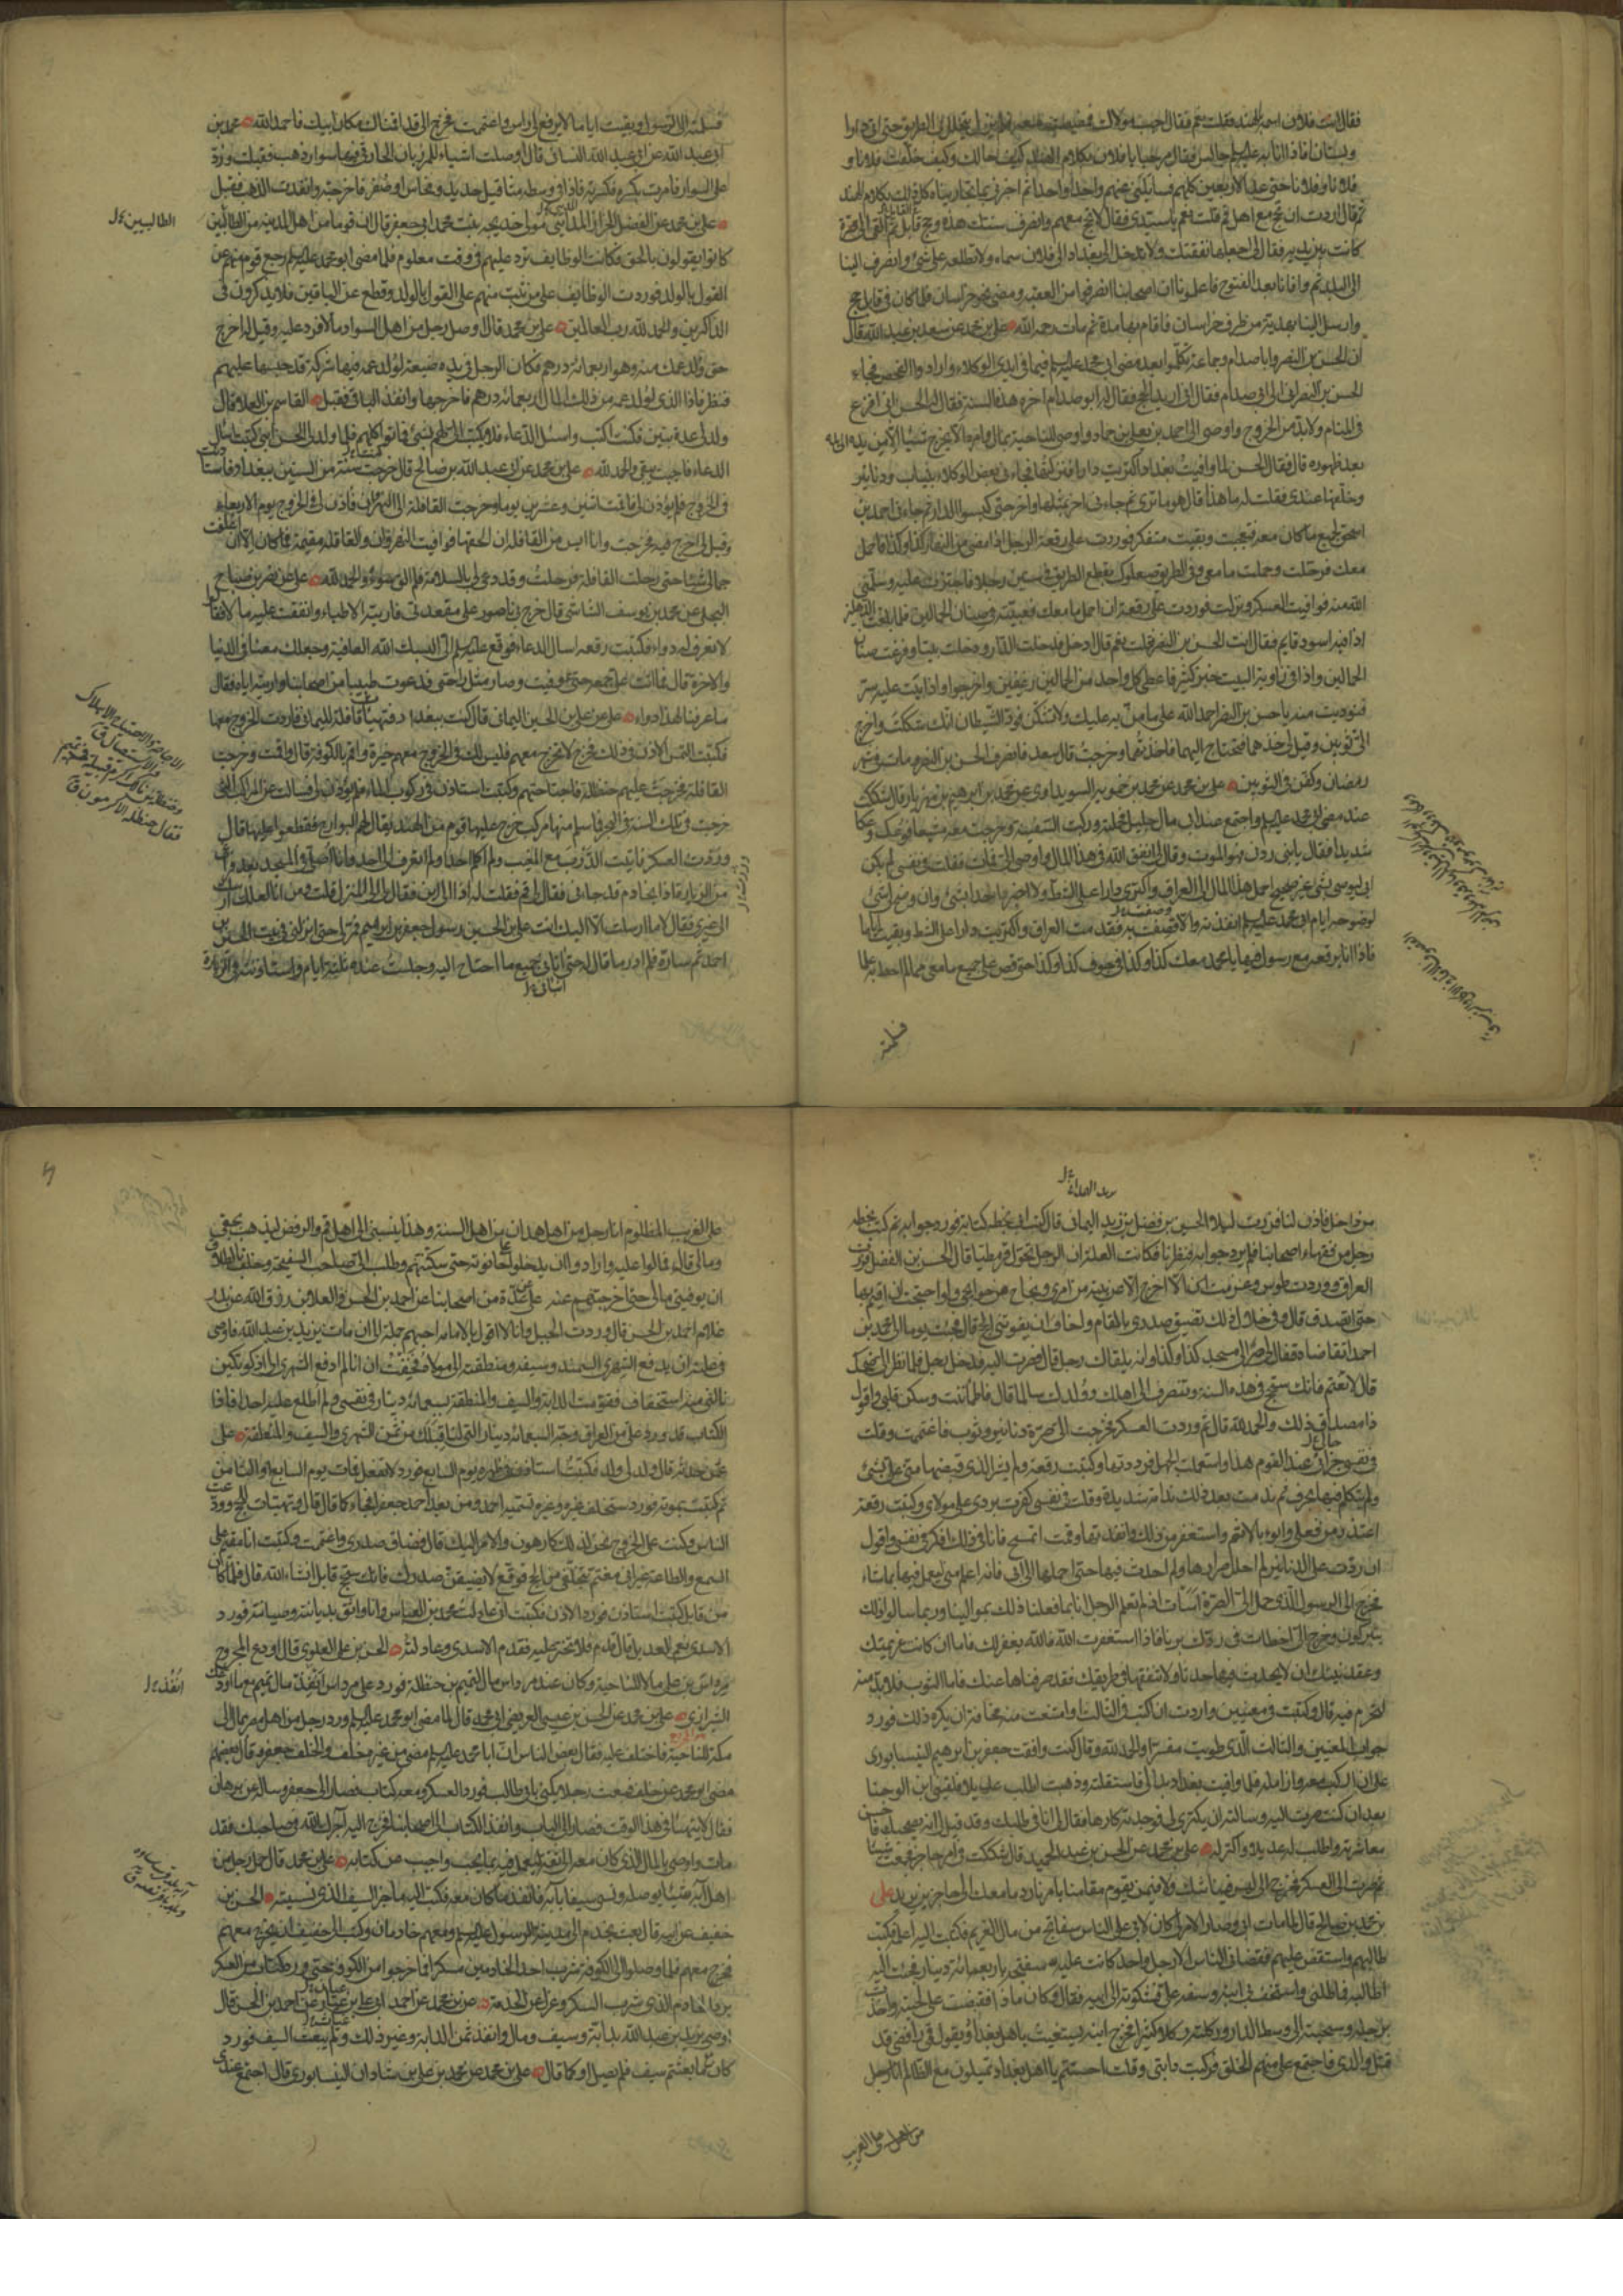 فقال انت فلان اسمه بالهند فقلت نعم فقال اجب مولاك فمضيت معه فلم يزل يتخلل بي الطريق حتى اتى دارا
وبستانا فاذا انا به عليه السلام جالس فقال مرحبا يا فلان بكلام الهند كيف حالك وكيف خلفت فلانا و
فلانا وفلانا حتى عد الاربعين كلهم فسائلني عنهم واحدا واحدا ثم اخبرني بما تجاريناه كل ذلك بكلام الهند
ثم قال اردت ان تحج مع اهل قم قلت نعم يا سيدي فقال لا تحج معهم وانصرف سنتك هذه وحج قابل ثم القى الي صرة
كانت بين يديه فقال لي اجعلها نفقتك ولا تدخل الى بغداد الى فلان سماه ولا تطلعه على شئ وانصرف الينا
الى البلد ثم وافانا بعد الفتوح فاعلمونا ان اصحابنا انصرفوا من العقبة ومضى نحو خراسان فلما كان في قابل حج
وارسل الينا بهدية من طرف خراسان فاقام بها مدة ثم مات رحمه الله علي بن محمد عن سعد بن عبد الله قال
ان الحسن بن النضر وابا صدام وجماعة تكلموا بعد مضي ابي محمد عليه السلام فيما في ايدي الوكلاء وارادوا الفحص فجاء
الحسن بن النضر الى ابي صدام فقال اني اريد الحج فقال له ابو صدام اخره هذه السنة فقال له الحسن اني افزع
في المنام ولا بد من الخروج واوصى الى احمد بن يعلى بن حماد واوصى للناحية بمال وامره الا يخرج شيئا الا من يده الى يده
بعد ظهوره قال فقال الحسن لما وافيت بغداد اكتريت دارا فنزلتها فجاءني بعض الوكلاء بثياب ودنانير
وخلفها عندي فقلت له ما هذا قال هو ما ترى ثم جاءني اخر بمثلها واخر حتى كبسوا الدار ثم جاءني احمد بن
اسحق بجميع ما كان معه فتعجبت وبقيت متفكرا فوردت علي رقعة الرجل اذا مضى من النهار كذا وكذا فاحمل
معك فرحلت وحملت ما معي وفي الطريق صعلوك يقطع الطريق في ستين رجلا فاجتزت عليه وسلمني
الله منه فوافيت العسكر ونزلت فوردت علي رقعة ان احمل ما معك فعبيته في صنان الحمالين فلما بلغت الدهليز
اذا فيه اسود قايم فقال انت الحسن بن النضر قلت نعم قال ادخل فدخلت الدار ودخلت بيتا وفرغت صنان
الحمالين واذا في زاوية البيت خبز كثير فاعطى كل واحد من الحمالين رغيفين واخرجوا واذا بيت عليه ستر
فنوديت منه يا حسن بن النضر احمد الله على ما من به عليك ولا تشكن فود الشيطان انك شككت واخرج
الي ثوبين وقيل لي خذهما فتحتاج اليهما فاخذتهما وخرجت قال سعد فانصرف الحسن بن النضر ومات في شهر
رمضان وكفن في الثوبين علي بن محمد عن محمد بن حمويه السويداوي عن محمد بن ابرهيم بن مهزيار قال شككت
عند مضي ابي محمد عليه السلام واجتمع عند ابي مال جليل فحمله وركب السفينة وخرجت معه مشيعا فوعك وعكا
شديدا فقال يا بني ردني فهو الموت وقال لي اتق الله في هذا المال واوصى الي فمات فقلت في نفسي لم يكن
ابي ليوصي بشئ غير صحيح احمل هذا المال الى العراق واكتري دارا على الشط ولا اخبر احدا بشئ وان وضح لي شئ
لوضوحه ايام ابي محمد عليه السلام انفذته والا قصفت به فقدمت العراق واكتريت دارا على الشط وبقيت اياما
فاذا انا برقعة مع رسول فيها يا محمد معك كذا وكذا في جوف كذا وكذا حتى قص علي جميع ما معي مما لم احط به علما
فسلمته
فسلمته الى الرسول وبقيت اياما لا يرفع لي راس واغتممت فخرج الي قد اقمناك مكان ابيك فاحمد الله محمد بن
ابي عبد الله عن ابي عبد الله النسائي قال اوصلت اشياء للمرزباني الحارثي فيها سوار ذهب فقبلت ورد
علي السوار فامرت بكسره فكسرته فاذا في وسطه مثاقيل حديد ونحاس او صفر فاخرجته وانفذت الذهب فقبل
علي بن محمد عن الفضل الخزاز المدائني مولى خديجة بنت محمد ابي جعفر قال ان قوما من اهل المدينة من الطالبيين
الطالبيين
كانوا يقولون بالحق فكانت الوظايف ترد عليهم في وقت معلوم فلما مضى ابو محمد عليه السلام رجع قوم منهم عن
القول بالولد فوردت الوظايف على من ثبت منهم على القول بالولد وقطع عن الباقين فلا يذكرون في
الذاكرين والحمد لله رب العالمين علي بن محمد قال اوصل رجل من اهل السواد مالا فرد عليه وقيل له اخرج
حق ولد عمك منه وهو اربعمائة درهم فكان الرجل في يده ضيعة لولد عمه فيها شركة قد حبسها عليهم
فنظر فاذا الذي لولد عمه من ذلك المال اربعمائة درهم فاخرجها وانفذ الباقي فقبل القاسم بن العلاء قال
ولد لي عدة بنين فكنت اكتب واسئل الدعاء فلا يكتب الي لهم بشئ فماتوا كلهم فلما ولد لي الحسن ابني كتبت اسال
الدعاء فاجبت يبقى والحمد لله علي بن محمد عن ابي عبد الله بن صالح قال خرجت سنة من السنين ببغداد فاستاذنت
في الخروج فلم يؤذن لي فاقمت اثنين وعشرين يوما وخرجت القافلة الى النهروان فاذن لي في الخروج يوم الاربعاء
وقيل لي اخرج فيه فخرجت وانا ايس من القافلة ان الحقها فوافيت النهروان والقافلة مقيمة فما كان الا ان اعلفت
جمالي شيئا حتى رحلت القافلة فرحلت وقد دعي لي بالسلامة فلم الق سوء والحمد لله علي عن نصر بن صباح
البجلي عن محمد بن يوسف الشاشي قال خرج بي ناصور على مقعدتي فاريته الاطباء وانفقت عليه مالا فقالوا
لا نعرف له دواء فكتبت رقعة اسال الدعاء فوقع عليه السلام الي البسك الله العافية وجعلك معنا في الدنيا
والاخرة قال فما اتت علي جمعة حتى عوفيت وصار مثل راحتي فدعوت طبيبا من اصحابنا واريته اياه فقال
ما عرفنا لهذا دواء علي عن علي بن الحسين اليماني قال كنت ببغداد فتهيات قافلة لليمانيين فاردت الخروج معها
فكتبت التمس الاذن في ذلك فخرج لا تخرج معهم فليس لك في الخروج معهم خيرة واقم بالكوفة قال واقمت وخرجت
القافلة فخرجت عليهم حنظلة فاجتاحتهم وكتبت استاذن في ركوب الماء فلم يؤذن لي فسالت عن المراكب التي
خرجت في تلك السنة في البحر فما سلم منها مركب خرج عليها قوم من الهند يقال لهم البوارح فقطعوا عليها قال
ووردت العسكر فاتيت الدرب مع المغيب ولم اكلم احدا ولم اتعرف الى احد وانا اصلي في المسجد بعد فراغي
من الزيارة اذا بخادم قد جاءني فقال لي قم فقلت له اذا الى اين فقال لي الى المنزل قلت ومن انا لعلك ارسلت
الى غيري فقال لا ما ارسلت الا اليك انت علي بن الحسين رسول جعفر بن ابراهيم فمر بي حتى انزلني في بيت الحسين بن
احمد ثم ساره فلم ادر ما قال له حتى اتاني جميع ما احتاج اليه وجلست عنده ثلثة ايام واستاذنته في الزيارة
من داخل فاذن لنا فزرت ليلا الحسن بن فضل بن زيد اليماني قال كتب ابي بخطه كتابا فورد جوابه ثم كتب بخطه
رجل من فقهاء اصحابنا فلم يرد جوابه فنظرنا فكانت العلة ان الرجل تحول قرمطيا قال الحسن بن الفضل فزرت
العراق ووردت طوس وعزمت ان لا اخرج الا عن بينة من امري ونجاح من حوائجي ولو احتجت ان اقيم بها
حتى اتصدق قال وفي خلال ذلك تضيق صدري بالمقام واخاف ان يفوتني الحج قال فجئت يوما الى محمد بن
احمد اتقاضاه فقال لي صر الى مسجد كذا وكذا وانه يلقاك رجل قال فصرت اليه فدخل علي رجل فلما نظر الي ضحك
قال لا تغتم فانك ستحج في هذه السنة وتنصرف الى اهلك وولدك سالما قال فاطمانت وسكن قلبي واقول
ذا مصداق ذلك والحمد لله قال ثم وردت العسكر فخرجت الي صرة دنانير وثوب فاغتممت وقلت
في نفسي جزائي عند القوم هذا واستعملت الجهل فرددتها وكتبت رقعة ولم يشر الذي قبضها مني علي بشئ
ولم يتكلم فيها بحرف ثم ندمت بعد ذلك ندامة شديدة وقلت في نفسي كفرت بردي على مولاي وكتبت رقعة
اعتذر من فعلي وابوء بالاثم واستغفر من ذلك وانفذتها وقمت اتمسح فانا في ذلك افكر في نفسي واقول
ان ردت علي الدنانير لم احلل صرارها ولم احدث فيها حتى احملها الى ابي فانه اعلم مني ليعمل فيها بما شاء
فخرج الى الرسول الذي حمل الي الصرة اسات اذ لم تعلم الرجل انا ربما فعلنا ذلك بموالينا وربما سالونا ذلك
يتبركون به وخرج الي اخطات في ردك برنا فاذا استغفرت الله فالله يغفر لك فاما اذا كانت عزيمتك
وعقد نيتك ان لا تحدث فيها حدثا ولا تنفقها في طريقك فقد صرفناها عنك فاما الثوب فلا بد منه
لتحرم فيه قال وكتبت في معنيين واردت ان اكتب في الثالث وامتنعت منه مخافة ان يكره ذلك فورد
جواب المعنيين والثالث الذي طويت مفسرا والحمد لله قال وكنت وافقت جعفر بن ابرهيم النيسابوري
على ان اركب معه وازامله فلما وافيت بغداد بدا لي فاستقلته وذهبت اطلب عديلا فلقيني ابن الوجنا
بعد ان كنت صرت اليه وسالته ان يكتري لي فوجدته كارها فقال لي انا في طلبك وقد قيل لي انه يصحبك فاحسن
معاشرته واطلب له عديلا واكتر له علي بن محمد عن الحسن بن عبد الحميد قال شككت في امر حاجز فجمعت شيئا
ثم صرت الى العسكر فخرج الي ليس فينا شك ولا فيمن يقوم مقامنا بامرنا رد ما معك الى حاجز بن يزيد علي
بن محمد بن صالح قال لما مات ابي وصار الامر لي كان لابي على الناس سفاتج من مال الغريم فكتبت اليه اعلمه فكتب
طالبهم واستقض عليهم فقضاني الناس الا رجل واحد كانت عليه سفتجة باربعمائة دينار فجئت اليه
اطالبه فماطلني واستخف بي ابنه وسفه علي فشكوته الى ابيه فقال وكان ماذا فقبضت على لحيته واخذت
برجله وسحبته الى وسط الدار وركلته ركلا كثيرا فخرج ابنه يستغيث باهل بغداد ويقول قمي رافضي قد
قتل والدي فاجتمع علي منهم الخلق فركبت دابتي وقلت احسنتم يا اهل بغداد تميلون مع الظالم انا رجل
على الغريب المظلوم انا رجل من اهل همدان من اهل السنة وهذا ينسبني الى اهل قم والرفض ليذهب بحقي
ومالي قال فمالوا عليه وارادوا ان يدخلوا على حانوته حتى سكنتهم وطلب الي صاحب السفتجة وحلف بالطلاق
ان يوفيني مالي حتى اخرجتهم عنه علي عن عدة من اصحابنا عن احمد بن الحسن والعلا بن رزق الله عن بدر
غلام احمد بن الحسن قال وردت الجبل وانا لا اقول بالامامة احبهم جملة الى ان مات يزيد بن عبد الله فاوصى
في علته ان يدفع الشهري السمند وسيفه ومنطقته الى مولاه فخفت ان انا لم ادفع الشهري الى اذكوتكين
نالني منه استخفاف فقومت الدابة والسيف والمنطقة بسبعمائة دينار في نفسي ولم اطلع عليه احدا فاذا
الكتاب قد ورد علي من العراق وجه السبعمائة دينار التي لنا قبلك من ثمن الشهري والسيف والمنطقة علي
عمن حدثه قال ولد لي ولد فكتبت استاذن في طهره يوم السابع فورد لا تفعل فمات يوم السابع او الثامن
ثم كتبت بموته فورد ستخلف غيره وغيره تسميه احمد ومن بعد احمد جعفرا فجاء كما قال قال وتهيات للحج وودعت
الناس وكنت على الخروج فورد نحن لذلك كارهون والامر اليك قال فضاق صدري واغتممت وكتبت انا مقيم على
السمع والطاعة غير اني مغتم بتخلفي عن الحج فوقع لا يضيقن صدرك فانك ستحج قابل انشاء الله قال فلما كان
من قابل كتبت استاذن فورد الاذن فكتبت اني عادلت محمد بن العباس وانا واثق بديانته وصيانته فورد
الاسدي نعم العديل فان قدم فلا تختر عليه فقدم الاسدي وعادلته الحسن بن علي العلوي قال اودع المجروح
مرداس بن علي مالا للناحية وكان عند مرداس مال لتميم بن حنظلة فورد على مرداس انفذ مال تميم مع ما اودعك
الشيرازي علي بن محمد عن الحسن بن عيسى العريضي ابي محمد قال لما مضى ابو محمد عليه السلام ورد رجل من اهل مصر بمال الى
مكة للناحية فاختلف عليه فقال بعض الناس ان ابا محمد عليه السلام مضى من غير خلف والخلف جعفر وقال بعضهم
مضى ابو محمد عن خلف فبعث رجلا يكنى بابي طالب فورد العسكر ومعه كتاب فصار الى جعفر وساله عن برهان
فقال لا يتهيا في هذا الوقت فصار الى الباب وانفذ الكتاب الى اصحابنا فخرج اليه آجرك الله في صاحبك فقد
مات واوصى بالمال الذي كان معه الى ثقة ليعمل فيه بما يجب واجيب عن كتابه علي بن محمد قال حمل رجل من
اهل آبه شيئا يوصله ونسي سيفا بآبه فانفذ ما كان معه فكتب اليه ما خبر السيف الذي نسيته الحسن بن
خفيف عن ابيه قال بعث بخدم الى مدينة الرسول عليه السلام ومعهم خادمان وكتب الى خفيف ان يخرج معهم
فخرج معهم فلما وصلوا الى الكوفة شرب احد الخادمين مسكرا فما خرجوا من الكوفة حتى ورد كتاب من العسكر
برد الخادم الذي شرب المسكر وعزل عن الخدمة علي بن محمد عن احمد ابي علي بن غياث عن احمد بن الحسن قال
اوصى يزيد بن عبد الله بدابة وسيف ومال وانفذ ثمن الدابة وغير ذلك ولم يبعث السيف فورد
كان مع ما بعثتم سيف فلم يصل او كما قال علي بن محمد عن محمد بن علي بن شاذان النيسابوري قال اجتمع عندي